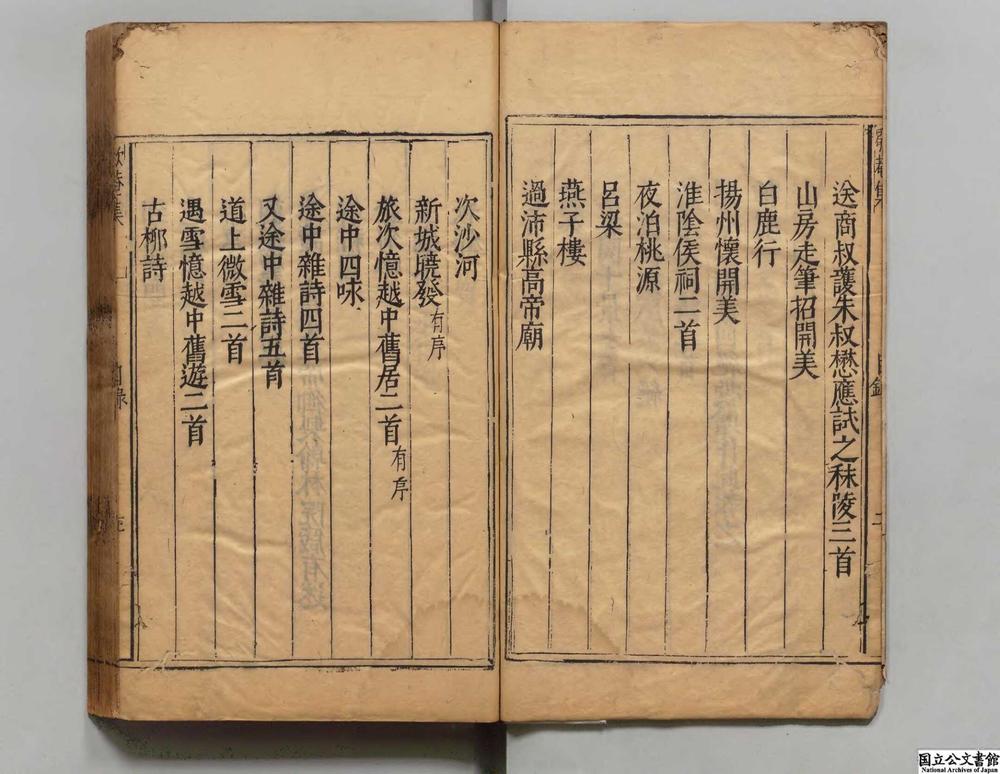 送商叔護朱叔懋應試之秣陵三首
山房走筆招開美
白鹿行
揚州懷開美
淮陰侯祠二首
夜泊桃源
呂梁
燕子樓
過沛縣高帝廟
次沙河
新城曉發有序
旅次憶越中舊居二首有序
途中四咏
途中雜詩四首
又途中雜詩五首
道上微雪二首
遇雪憶越中舊遊二首
古柳詩
目錄
国立公文書館
National Archives of Japan